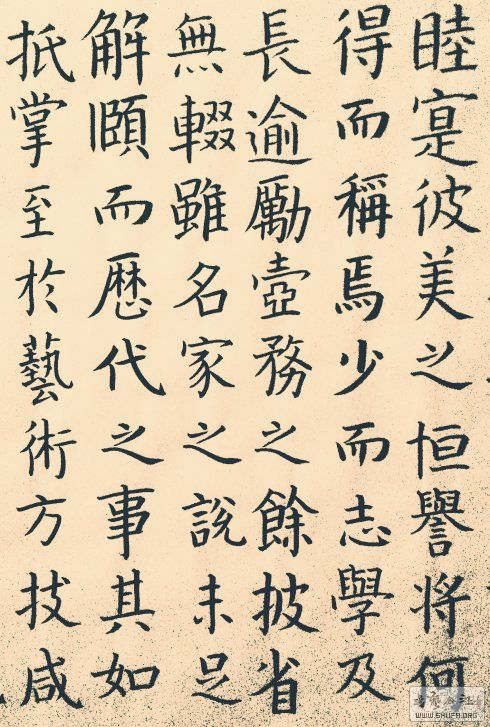 睦寔彼美之恒譽将何
得而稱焉少而志學及
長逾勵壺務之餘披省
無輟雖名家之說未足
解頤而歷代之事其如
抵掌至於藝術方技咸
WWW.SHUFA.ORG